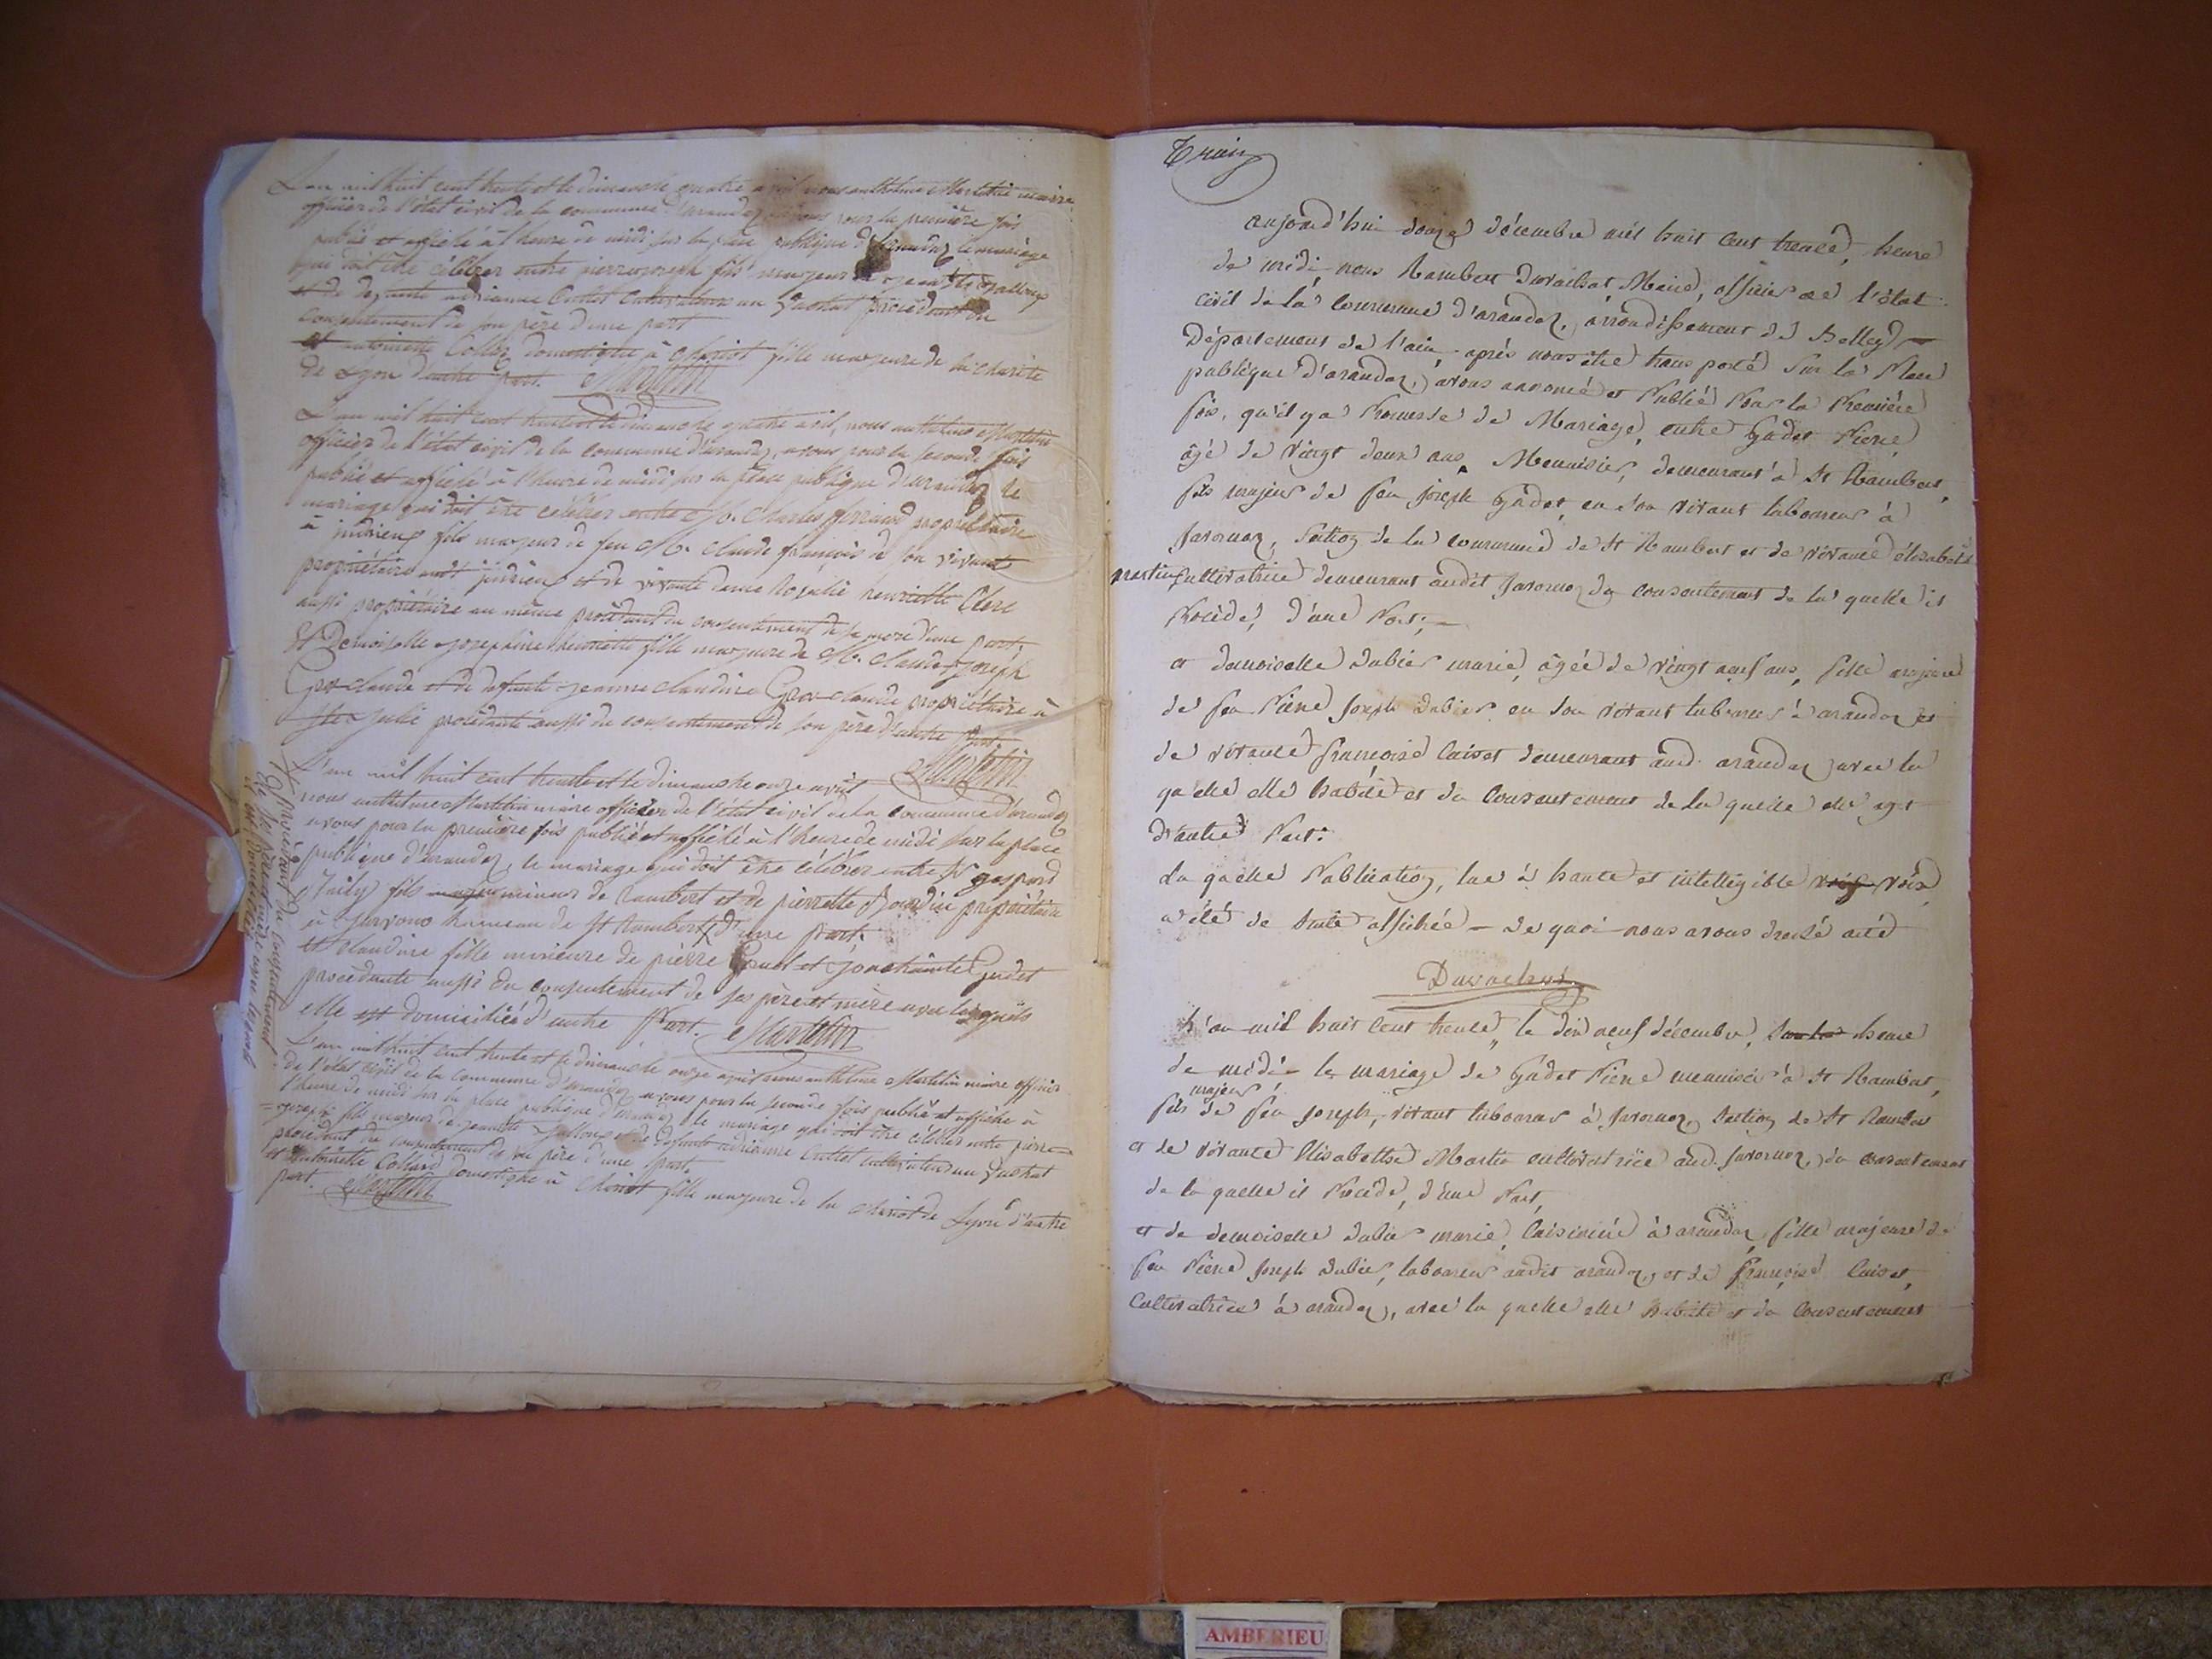 L'an mil huit cent trente et le dimanche quatre avril nous anthelme Martelin maire
officier de l'état civil de la commune d'arandaz avons pour la première fois
publié et affiché à l'heure de midi sur la place publique d'arandaz le mariage
qui doit être célébrer entre pierre joseph fils majeur de jean
et de defunte adrienne Cuttet Cultivateur au procédant du
consentement de son père d'une part
et antoinette Collaz domestique à fille majeure de la charité
de Lyon d'autre part. Martelin
L'an mil huit cent trente et le dimanche quatre avril, nous anthelme Martelin
officier de l'état civil de la commune d'arandaz, avons pour la seconde fois
publié et affiché à l'heure de midi sur la place publique d'arandaz le
mariage qui doit être célébrer entre Mr. Charles ferrand propriétaire
à jujurieux fils majeur de feu Mr. Claude françois de son vivant
propriétaire audt jujurieux et de vivante dame Rosalie henriette Clerc
aussi propriétaire au même procédant du consentement de sa mere d'une part,
Et Demoiselle Josephine henriette fille majeure de Mr. Claude Joseph
Gros claude et de defunte jeanne claudine Gros claude propriétaire à
julie procédante aussi du consentement de son père d'autre part.
Martelin
L'an mil huit cent trente et le dimanche onze avril
nous anthelme Martelin maire officier de l'état civil de la commune d'arandaz
avons pour la première fois publié et affiché à l'heure de midi sur la place
publique d'arandaz, le mariage qui doit être célébrer entre Sr gaspard
fils mineur de rambert et de pierrette Jourdin propriétaire
à javornoz hameau de St Rambert d'une part.
et claudine fille mineure de pierre et Gudet
procédante aussi du consentement de ses père et mère avec lesquels
elle est domiciliée d'autre part. Martelin
procédant du consentement
de ses père et mère avec lesquels
il est domicilié
L'an mil huit cent trente et le dimanche onze avril nous anthelme Martelin maire officier
de l'état civil de la commune d'arandaz avons pour la seconde fois publié et affiché à
l'heure de midi sur la place publique d'arandaz le mariage qui doit être célébrer entre pierre
joseph fils majeur de jean et de defunte adrienne Cuttet cultivateur au
procédant du consentement de son père d'une part.
et Antoinette Collard domestique à fille majeure de la charité de Lyon d'autre
part. Martelin
aujourd'hui douze décembre mil huit cent trente, heure
de midi, nous Rambert Duvachat Maire, officier de l'état
civil de la Commune d'arandaz, arrondissement de Belley
Département de l'ain, après nous être transporté sur la Place
publique d'arandaz, avons annoncé et Publié Pour la Première
fois, qu'il y a Promesse de Mariage, entre Gudet Pierre
âgé de vingt deux ans, Menuisier, demeurant à St Rambert,
fils majeur de feu joseph Gudet, en son vivant laboureur à
Javornoz, Section de la commune de St Rambert et de vivante élisabeth
martin Cultivatrice demeurant audit Javornoz du consentement de la quelle il
Procède, d'une Part;
et demoiselle Dubier marie, âgée de vingt neuf ans, fille majeure
de feu Pierre Joseph Dubier en son vivant laboureur à arandaz et
de vivante françoise Cuiset demeurant aud. arandaz, avec la
quelle elle habite et du Consentement de la quelle elle agit
d'autre Part.
La quelle Publication, lue à haute et intelligible voix voix
a été de suite affichée - de quoi nous avons dressé acte
Duvachat
L'an mil huit cent trente, le dix neuf décembre, heure
de midi - le mariage de Gudet Pierre menuisier à St Rambert,
majeur
fils de feu Joseph, vivant laboureur à Javornoz, Section de St Rambert
et de vivante Elisabethe Martin cultivatrice aud. Javornoz, du consentement
de la quelle il Procède, d'une Part,
et de demoiselle Dubier marie, Cuisinière à arandaz, fille majeure de
feu Pierre Joseph Dubier, laboureur audit arandaz, et de françoise Cuiset,
Cultivatrice à arandaz, avec la quelle elle habite et du Consentement
AMBERIEU